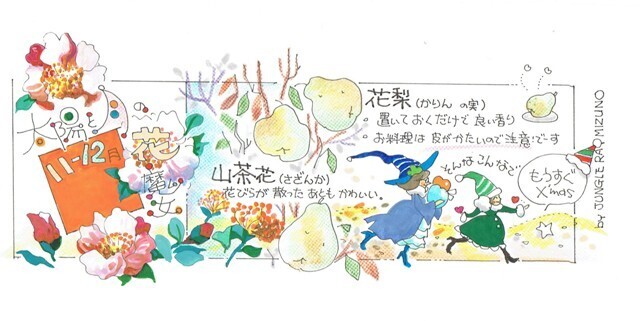 太陽と
花魔女
11-12月
花梨(かりんの実)
。置いておくだけで良い香り
。お料理は皮がかたいので注意でーす
山茶花(さざんか)
花びらが散ったあともかわいい
そんなこんなで
もうすぐ
X'mas
by JUNGLE RAO MIZUNO